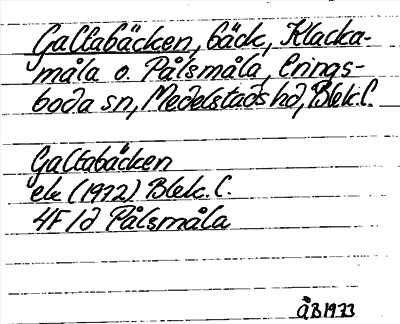 Galtabäcken, bäck, Klacka-
måla o. Pålsmåla, Erings-
boda sn, Medelstads hd, Blek. l.
Galtabäcken
ek (1972) Blek. l.
4F 1d Pålsmåla
ÅB 1973